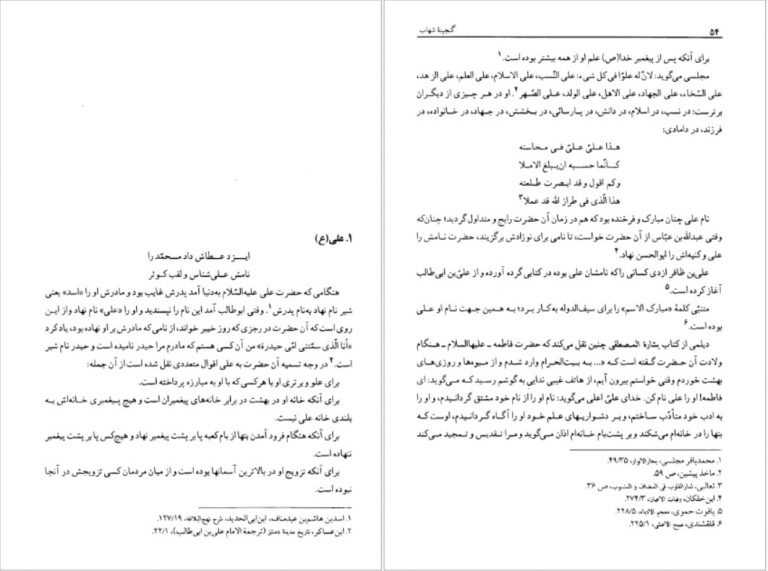 ۱. علی(ع)
ایزد عطاش داد محمّد را
نامش علی‌شناس و لقب کوثر
هنگامی که حضرت علی علیه‌السّلام به‌دنیا آمد پدرش غایب بود و مادرش او را «اسد» یعنی
شیر نام نهاد به‌نام پدرش۱. وقتی ابوطالب آمد این نام را نپسندید و او را «علی» نام نهاد و از این
روی است که آن حضرت در رجزی که روز خیبر خواند، از نامی که مادرش بر او نهاده بود، یاد کرد
«أنا الّذی سمّتنی امّی حیدرة» من آن کسی هستم که مادرم مرا حیدر نامیده است و حیدر نام شیر
است.۲ در وجه تسمیه آن حضرت به علی اقوال متعددی نقل شده است از آن جمله:
برای علو و برتری او با هرکسی که با او به مبارزه پرداخته است.
برای آنکه خانه او در بهشت در برابر خانه‌های پیغمبران است و هیچ پیغمبری خانه‌اش به
بلندی خانه علی نیست.
برای آنکه هنگام فرود آمدن بتها از بام کعبه پا بر پشت پیغمبر نهاد و هیچ‌کس پا بر پشت پیغمبر
ننهاده است.
برای آنکه تزویج او در بالاترین آسمانها بوده است و از میان مردمان کسی تزویجش در آنجا
نبوده است.
۱. اسدبن هاشم‌بن عبدمناف، ابن‌ابی‌الحدید، شرح نهج‌البلاغه، ۱۲۷/۱۹.
۲. ابن‌عساکر، تاریخ مدینة دمشق (ترجمة الامام علی‌بن ابی‌طالب)، ۲۲/۱.
گنجینهٔ شهاب
۵۴
برای آنکه پس از پیغمبر خدا(ص) علم او از همه بیشتر بوده است.۱
مجلسی می‌گوید: لانّ له علوّاً فی کل شیء: علی النّسب، علی الاسلام، علی العلم، علی الزهد،
علی السّخاء، علی الجهاد، علی الاهل، علی الولد، علی الصّهر۲. او در هر چیزی از دیگران
برترست: در نسب، در اسلام، در دانش، در پارسائی، در بخشش، در جهاد، در خانواده، در
فرزند، در دامادی:
هذا علیّ علیّ فی محاسنه
کانّما حسبه ان‌یبلغ الاملا
وکم اقول وقد ابصرت طلعته
هذا الّذی فی طراز اللّه قد عملا۳
نام علی چنان مبارک و فرخنده بود که هم در زمان آن حضرت رایج و متداول گردید؛ چنان‌که
وقتی عبداللّه‌بن عبّاس از آن حضرت خواست، تا نامی برای نوزادش برگزیند، حضرت نامش را
علی و کنیه‌اش را ابوالحسن نهاد.۴
علی‌بن ظافر ازدی کسانی را که نامشان علی بوده در کتابی گرده آورده و از علیّ‌بن ابی‌طالب
آغاز کرده است.۵
متنبّی کلمهٔ «مبارک الاسم» را برای سیف‌الدوله به‌کار برد؛ به‌همین جهت نام او علی
بوده است.۶
دیلمی از کتاب بشارة المصطفی چنین نقل می‌کند که حضرت فاطمه ـ علیهاالسلام ـ هنگام
ولادت آن حضرت گفته است که «... به بیت‌الحرام وارد شدم و از میوه‌ها و روزی‌های
بهشت خوردم وقتی خواستم بیرون آیم، از هاتف غیبی ندایی به گوشم رسید که می‌گوید: ای
فاطمه! او را علی نام کن. خدای علیّ اعلی می‌گوید: نام او را از نام خود مشتق گردانیدم، و او را
به ادب خود متأدّب ساختم، و بر دشواریهای علم خود او را آگاه گردانیدم، اوست که
بتها را در خانه‌ام می‌شکند و بر پشت‌بام خانه‌ام اذان می‌گوید و مرا تقدیس و تمجید می‌کند
۱. محمدباقر مجلسی، بحارالانوار، ۴۹/۳۵.
۲. ماخذ پیشین، ص ۵۹.
۳. ثعالبی، ثمارالقلوب فی المضاف و المنسوب، ص ۳۶.
۴. ابن‌خلکان، وفیات الاعیان، ۲۷۴/۳.
۵. یاقوت حموی، معجم الادباء، ۲۲۸/۵.
۶. قلقشندی، صبح الاعشی، ۲۲۵/۱.